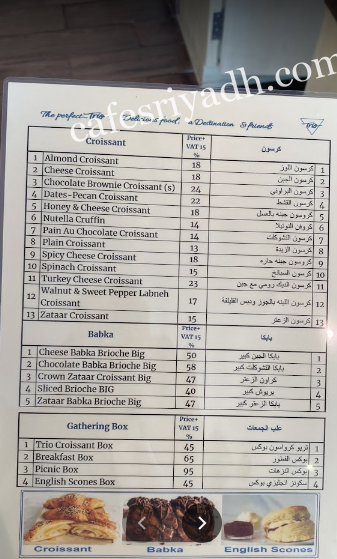 cafesriyadh.com
The perfect Trio Delicious food, a Destination & friends
Trio
Croissant Price+ VAT 15 % كرسون
1 Almond Croissant 18 كرسون اللوز 1
2 Cheese Croissant 18 كرسون الجبن 2
3 Chocolate Brownie Croissant (s) 24 كرسون البراوني 3
4 Dates-Pecan Croissant 22 4
5 Honey & Cheese Croissant 18 كرسون جبنه بالعسل 5
6 Nutella Cruffin 14 كروفن النوتيلا 6
7 Pain Au Chocolate Croissant 14 كرسون الشوكلات 7
8 Plain Croissant 13 كرسون الزبدة 8
9 Spicy Cheese Croissant 18 كروسون جبنه حاره 9
10 Spinach Croissant 15 كرسون السبانخ 10
11 Turkey Cheese Croissant 23 كرسون الديك رومي مع جبن 11
12 Walnut & Sweet Pepper Labneh Croissant 17 كرسون اللبنه بالجوز ودبس الفليفلة 12
13 Zataar Croissant 15 كرسون الزعتر 13
Babka Price+ VAT 15 % بابكا
1 Cheese Babka Brioche Big 50 بابكا الجبن كبير 1
2 Chocolate Babka Brioche Big 58 بابكا الشوكلات كبير 2
3 Crown Zataar Croissant Big 47 كراون الزعتر 3
4 Sliced Brioche BIG 40 بريوش كبير 4
5 Zataar Babka Brioche Big 47 بابكا الزعتر كبير 5
Gathering Box Price+ VAT 15 % علب الجمعات
1 Trio Croissant Box 45 تريو كرواسون بوكس 1
2 Breakfast Box 65 بوكس الفطور 2
3 Picnic Box 95 بوكس النزهات 3
4 English Scones Box 45 سكونز انجليزي بوكس 4
Croissant Babka English Scones